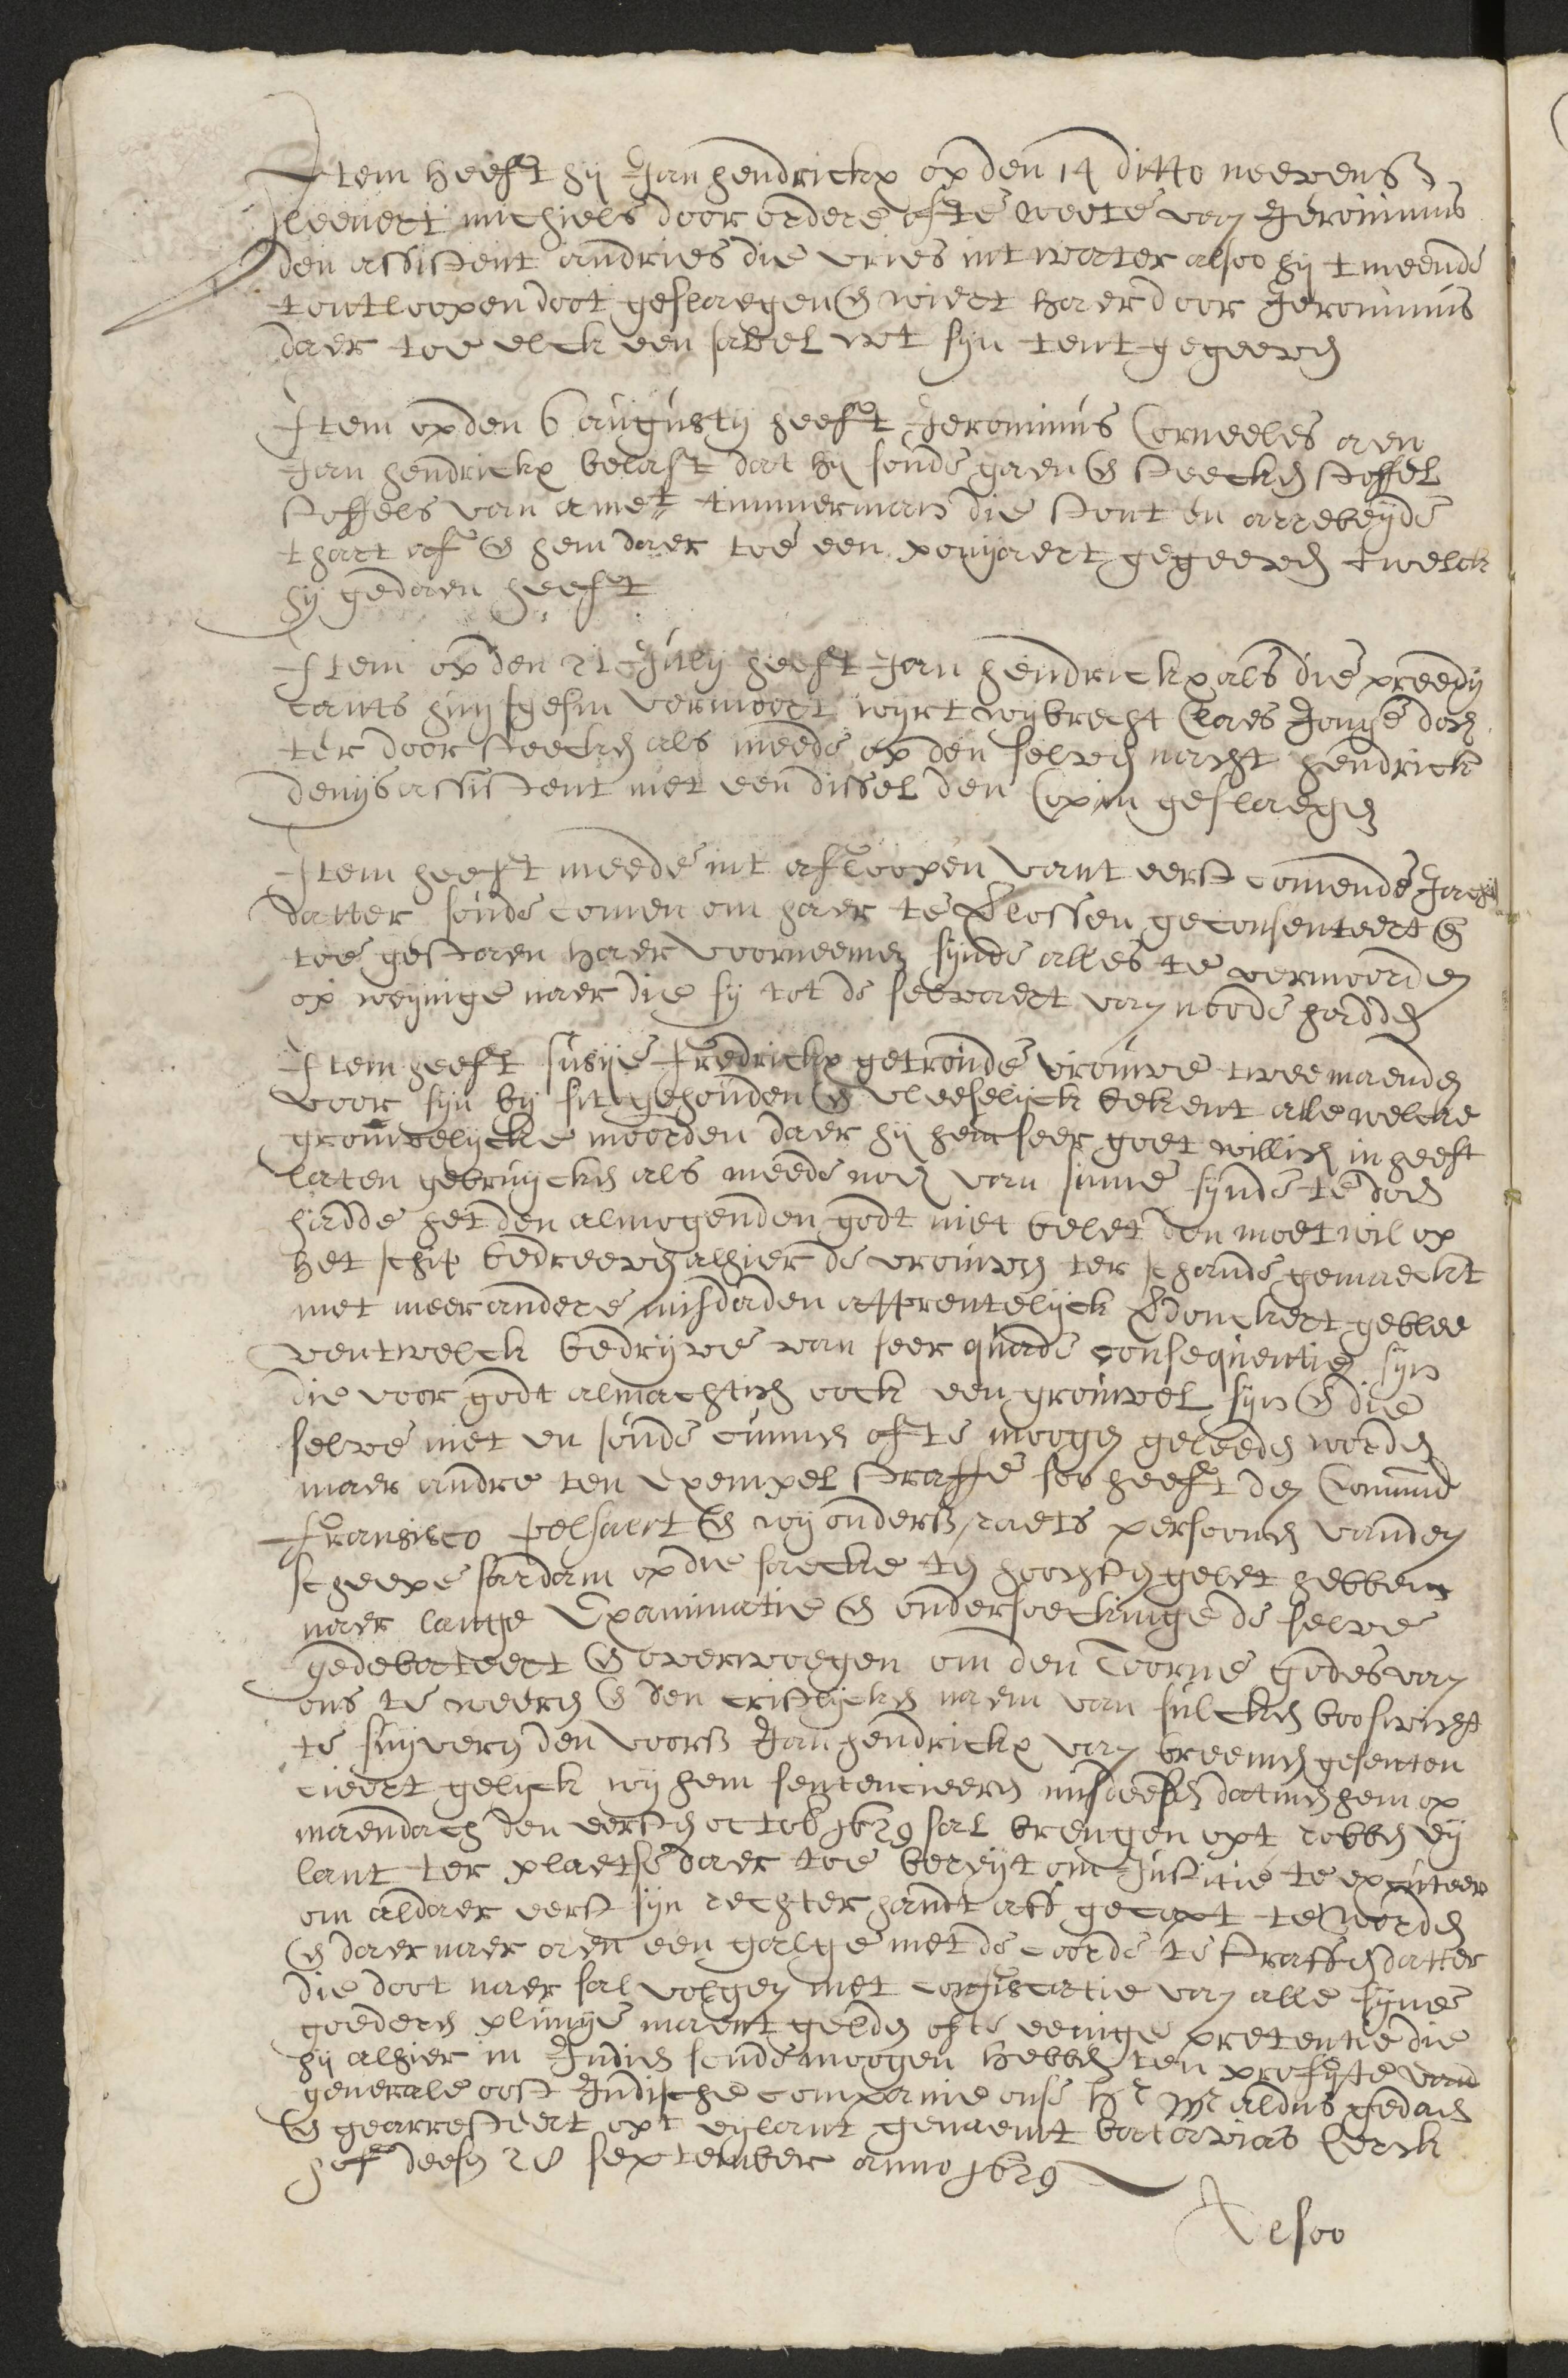 Item heeft hij Jan hendrickx op den 14 ditto neevens
leenert michiels door ordere ofte weete van Jeronimus
den assistent andries die vries int water alsoo hij tmeende
tontloopen doot geslaegen & wiert haer door Jeronimus
daer toe elck een sabel uut sijn tent gegeeven
Item op den 6 augustij heeft Jeronimus Corneeles aen
Jan hendrickx belast dat hij soude gaen & steecken stoffel
stoffels van amet timmerman die stont en arrebeijde
thart af & hem daer toe een ponjaert gegeeven twelck
hij gedaen heeft
Item op den 21 Julij heeft Jan hendrickx als die preedij
cants huijsgesin vermoort wijrt wijbrecht Claes Jonge doch
ter doorsteecken als meede op den selven nacht hendrick
denijs assistent met een dissel den Cop in geslaegen
Item heeft meede int afloopen vant eerst comende Jacht
datter soude comen om haer te verlossen geconsenteert &
toe gestaen haer voorneemen sijnde alles te vermoorden
op weijnige naer die sij tot de seevaert van noode hadden
Item heeft susije fredrickx getroude vrouwe twee maenden
voor sijn bij sit gehouden & vleeselijck bekent alle welcke
grouwelijcke moorden daer hij hem seer goet willich in heeft
laten gebruijcken als meede noch van sinne sijnde te doen
hadde het den almogenden godt niet belet den moetwil op
het schip bedreeven alhier de vrouwen ter schande gemaeckt
met meer andere misdaden apparentelijck verdonckert geblee
ven twelck bedrijve van seer quade consequentie sijn
die voor godt almachtich oock een grouwel sijn & die
selve niet en soude cunnen ofte moogen geleeden worden
maer andre ten exempel straffe soo heeft den Commd
fransisco pelsaert & wij onders raets persoonen vanden
scheepe sardam op die saecke ten hoochsten gelet hebben
naer lange Examinatie & ondersoeckinge de selve
gedebatteert & overwoegen om den toorne godes van
ons te weeren & den cristelijcken naem van sulcken booswicht
te suijveren den voors Jan hendrickx van breemen gesenten
cieert gelijck wij hem sentencieeren mits deesen datmen hem op
maendach den eersten octob 1629 sal brengen opt robben eij
lant ter plaetse daer toe bereijt om Justitie te excuteer
om aldaer eerst sijn rechter handt aff gecapt te worden
& daer naer aen een galge met de coorde te straffen datter
die doot naer sal volgen met confiscatie van alle sijne
goederen plunije maent gelden ofte eenige pretentie die
hij alhier in Indien soude moogen hebben ten profijte vand
generale oost Indische companie onse Hr Mr aldus gedaen
& gearresteert opt eijlant genaemt batavias Kerck
hof deesen 28 september anno 1629
Alsoo